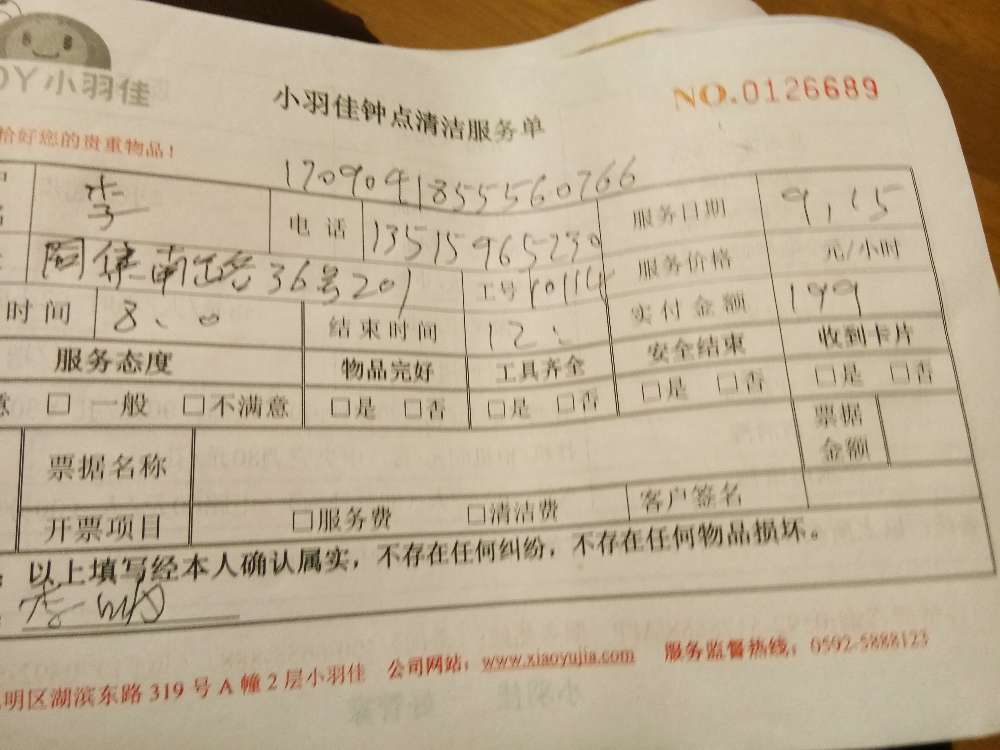 DY小羽佳
小羽佳钟点清洁服务单
NO.0126689
恰好您的贵重物品！
1709041855560766
李 电话 13515965230 服务日期 9.15
南路36号201 工号 10114 服务价格 元/小时
时间 8:0 结束时间 12: 实付金额 199
服务态度 物品完好 工具齐全 安全结束 收到卡片
意 □ 一般 □不满意 □是 □否 □是 □否 □是 □否 □是 □否
票据名称 票据金额
开票项目 □服务费 □清洁费 客户签名
：以上填写经本人确认属实，不存在任何纠纷，不存在任何物品损坏。
明区湖滨东路 319 号 A 幢 2 层小羽佳 公司网站：www.xiaoyujia.com 服务监督热线：0592-5888123